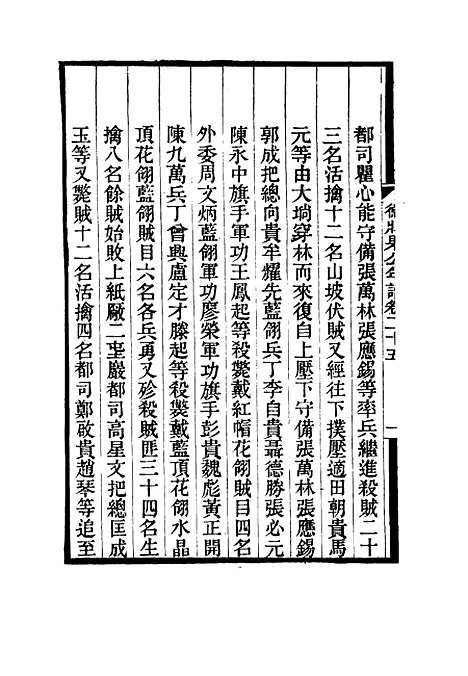 都司瞿心能守備張萬林張應錫等率兵繼進殺賊二十
三名活擒十二名山坡伏賊又經往下撲壓適田朝貴馬
元等由大塆穿林而來復自上壓下守備張萬林張應錫
郭成把總向貴牟耀先藍翎兵丁李自貴聶德勝張必元
陳永中旗手軍功王鳳起等殺斃戴紅帽花翎賊目四名
外委周文炳藍翎軍功廖榮軍功旗手彭貴魏彪黃正開
陳九萬兵丁曾興盧定才滕起等殺斃戴藍頂花翎水晶
頂花翎藍翎賊目六名各兵勇又殄殺賊匪三十四名生
擒八名餘賊始敗上紙厰二坉巖都司高星文把總匡成
玉等又斃賊十二名活擒四名都司鄭啟貴趙琴等追至